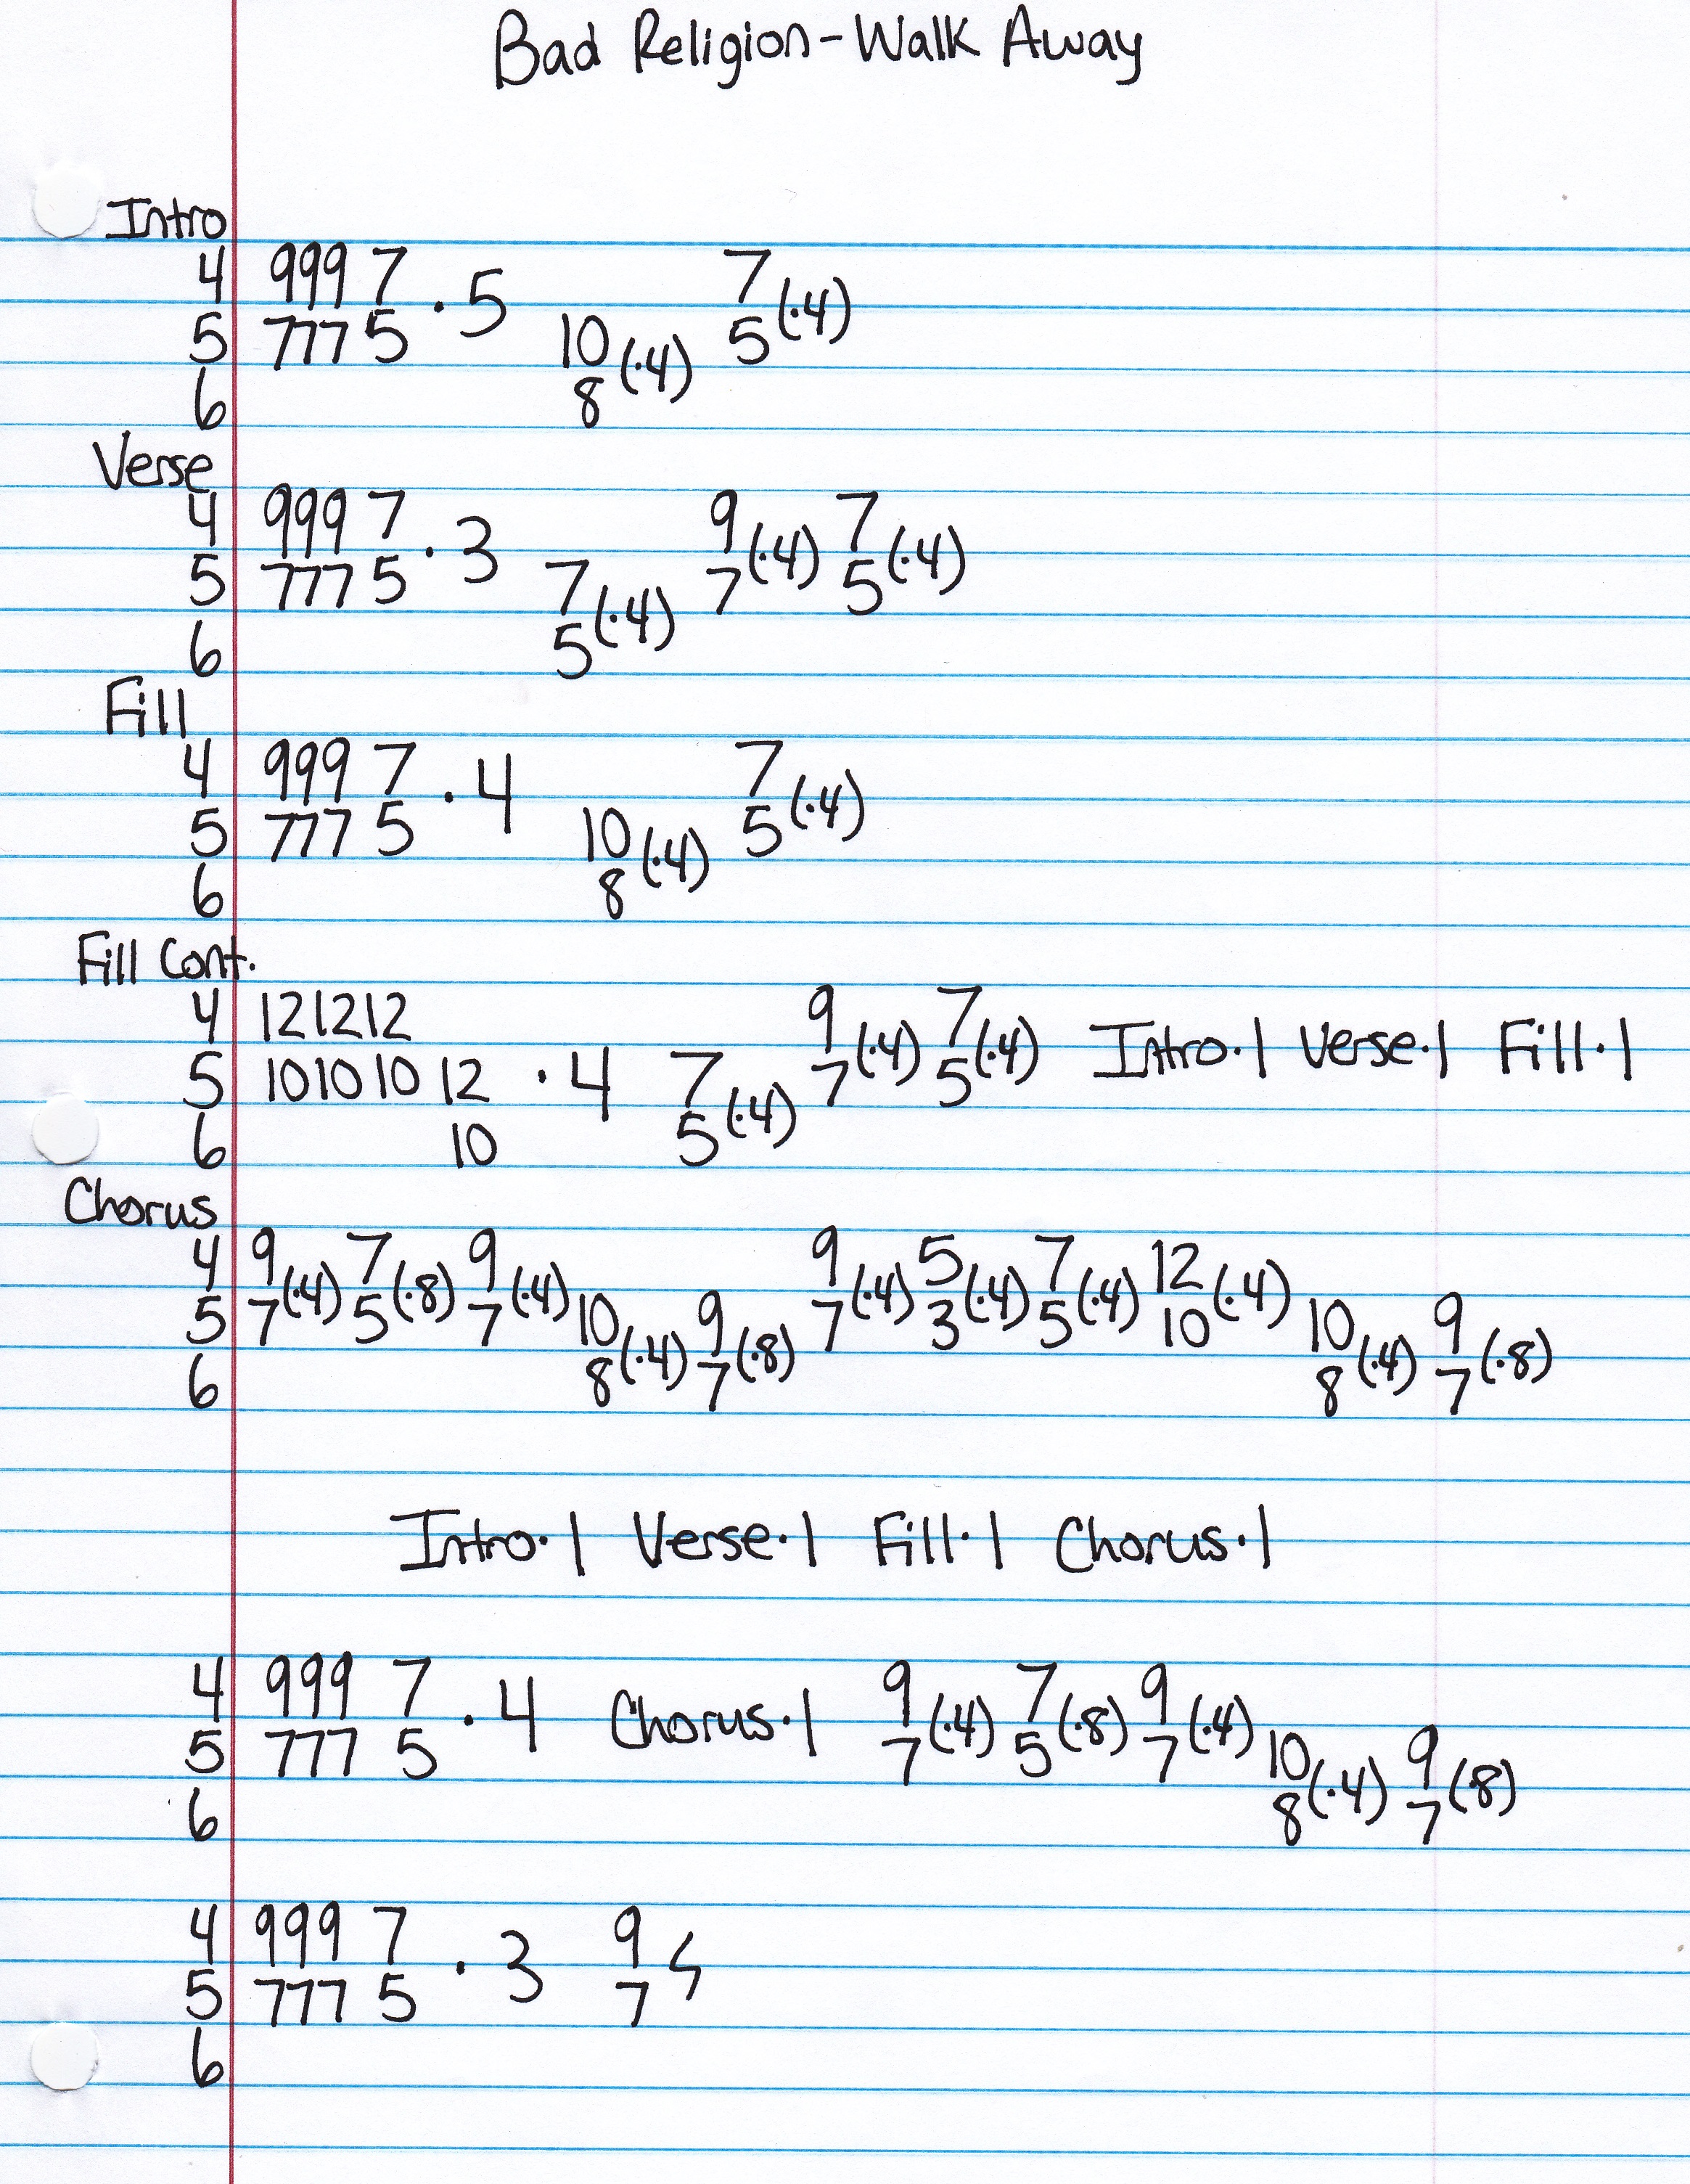 Bad Religion-Walk Away
Intro
4 999 7 7
5 777 5 ·5 10(·4) 5(·4)
6 8
Verse
4 999 7 9 7
5 777 5 ·3 7(·4) 7(·4) 5(·4)
6 5
Fill
4 999 7 7
5 777 5 ·4 10(·4) 5(·4)
6 8
Fill Cont.
4 121212 9 7
5 101010 12 ·4 7(·4) 7(·4) 5(·4) Intro·1 Verse·1 Fill·1
6 10 5
Chorus
4 9 7 9 9 5 7 12
5 7(·4) 5(·8) 7(·4) 10 9 7(·4) 3(·4) 5(·4) 10(·4) 10 9
6 8(·4) 7(·8) 8(·4) 7(·8)
Intro·1 Verse·1 Fill·1 Chorus·1
4 999 7 9 7 9
5 777 5 ·4 Chorus·1 7(·4) 5(·8) 7(·4) 10 9
6 8(·4) 7(·8)
4 999 7 9
5 777 5 ·3 7
6